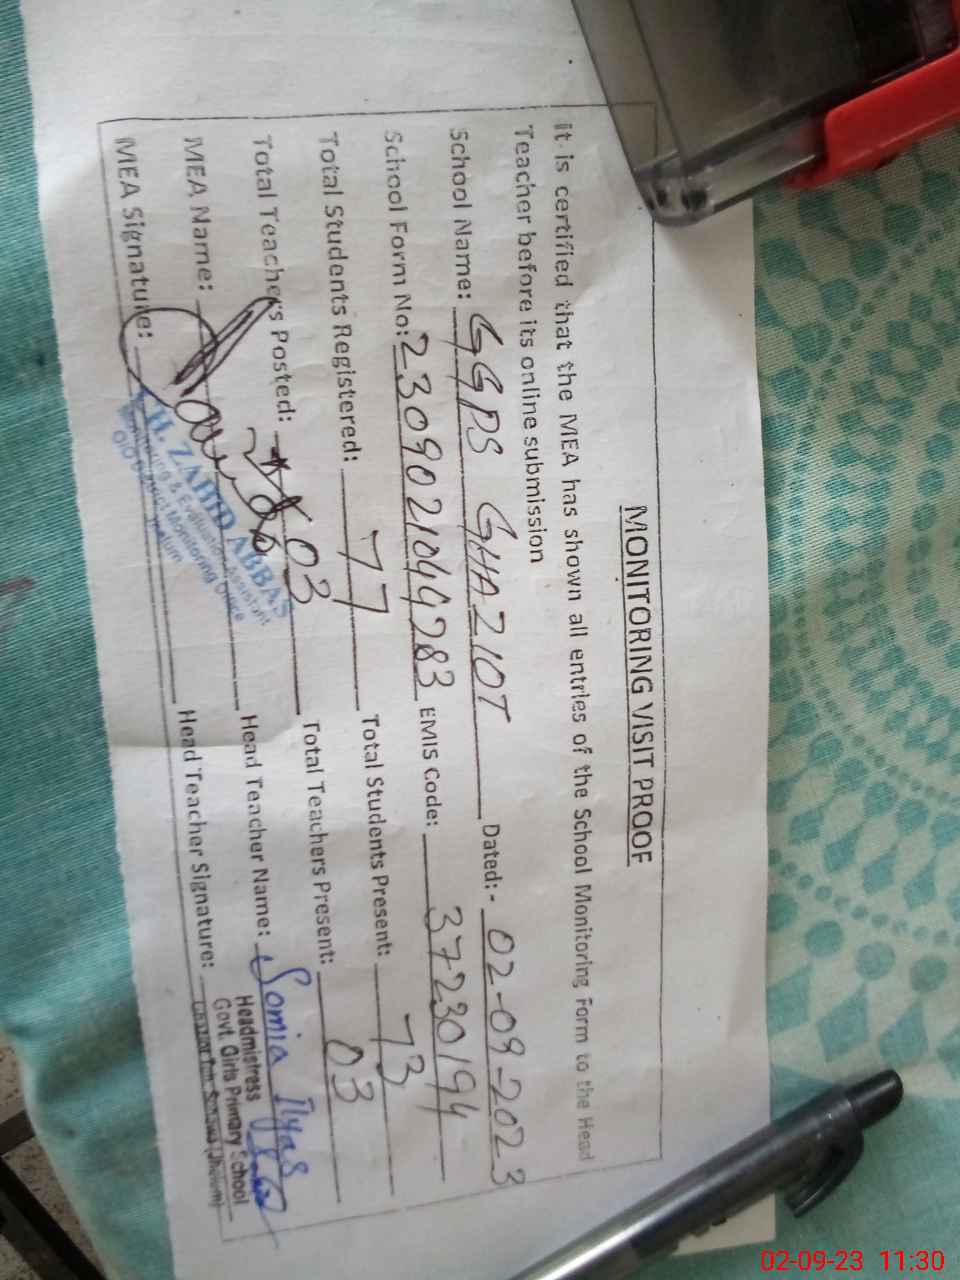 MONITORING VISIT PROOF
it is certified that the MEA has shown all entries of the School Monitoring Form to the Head
Teacher before its online submission
School Name: GGPS GHAZIOT Dated:- 02-09-2023
School Form No: 2309021049283 EMIS Code: 37230194
Total Students Registered: 77 Total Students Present: 73
Total Teachers Posted: 03 Total Teachers Present: 03
MEA Name: Head Teacher Name: Somia Ilyas
MEA Signature: Head Teacher Signature:
CH. ZAHID ABBAS
Monitoring & Evaluation Assistant
O/O District Monitoring Office
Jhelum
Headmistress
Govt. Girls Primary School
(Jhelum)
02-09-23 11:30